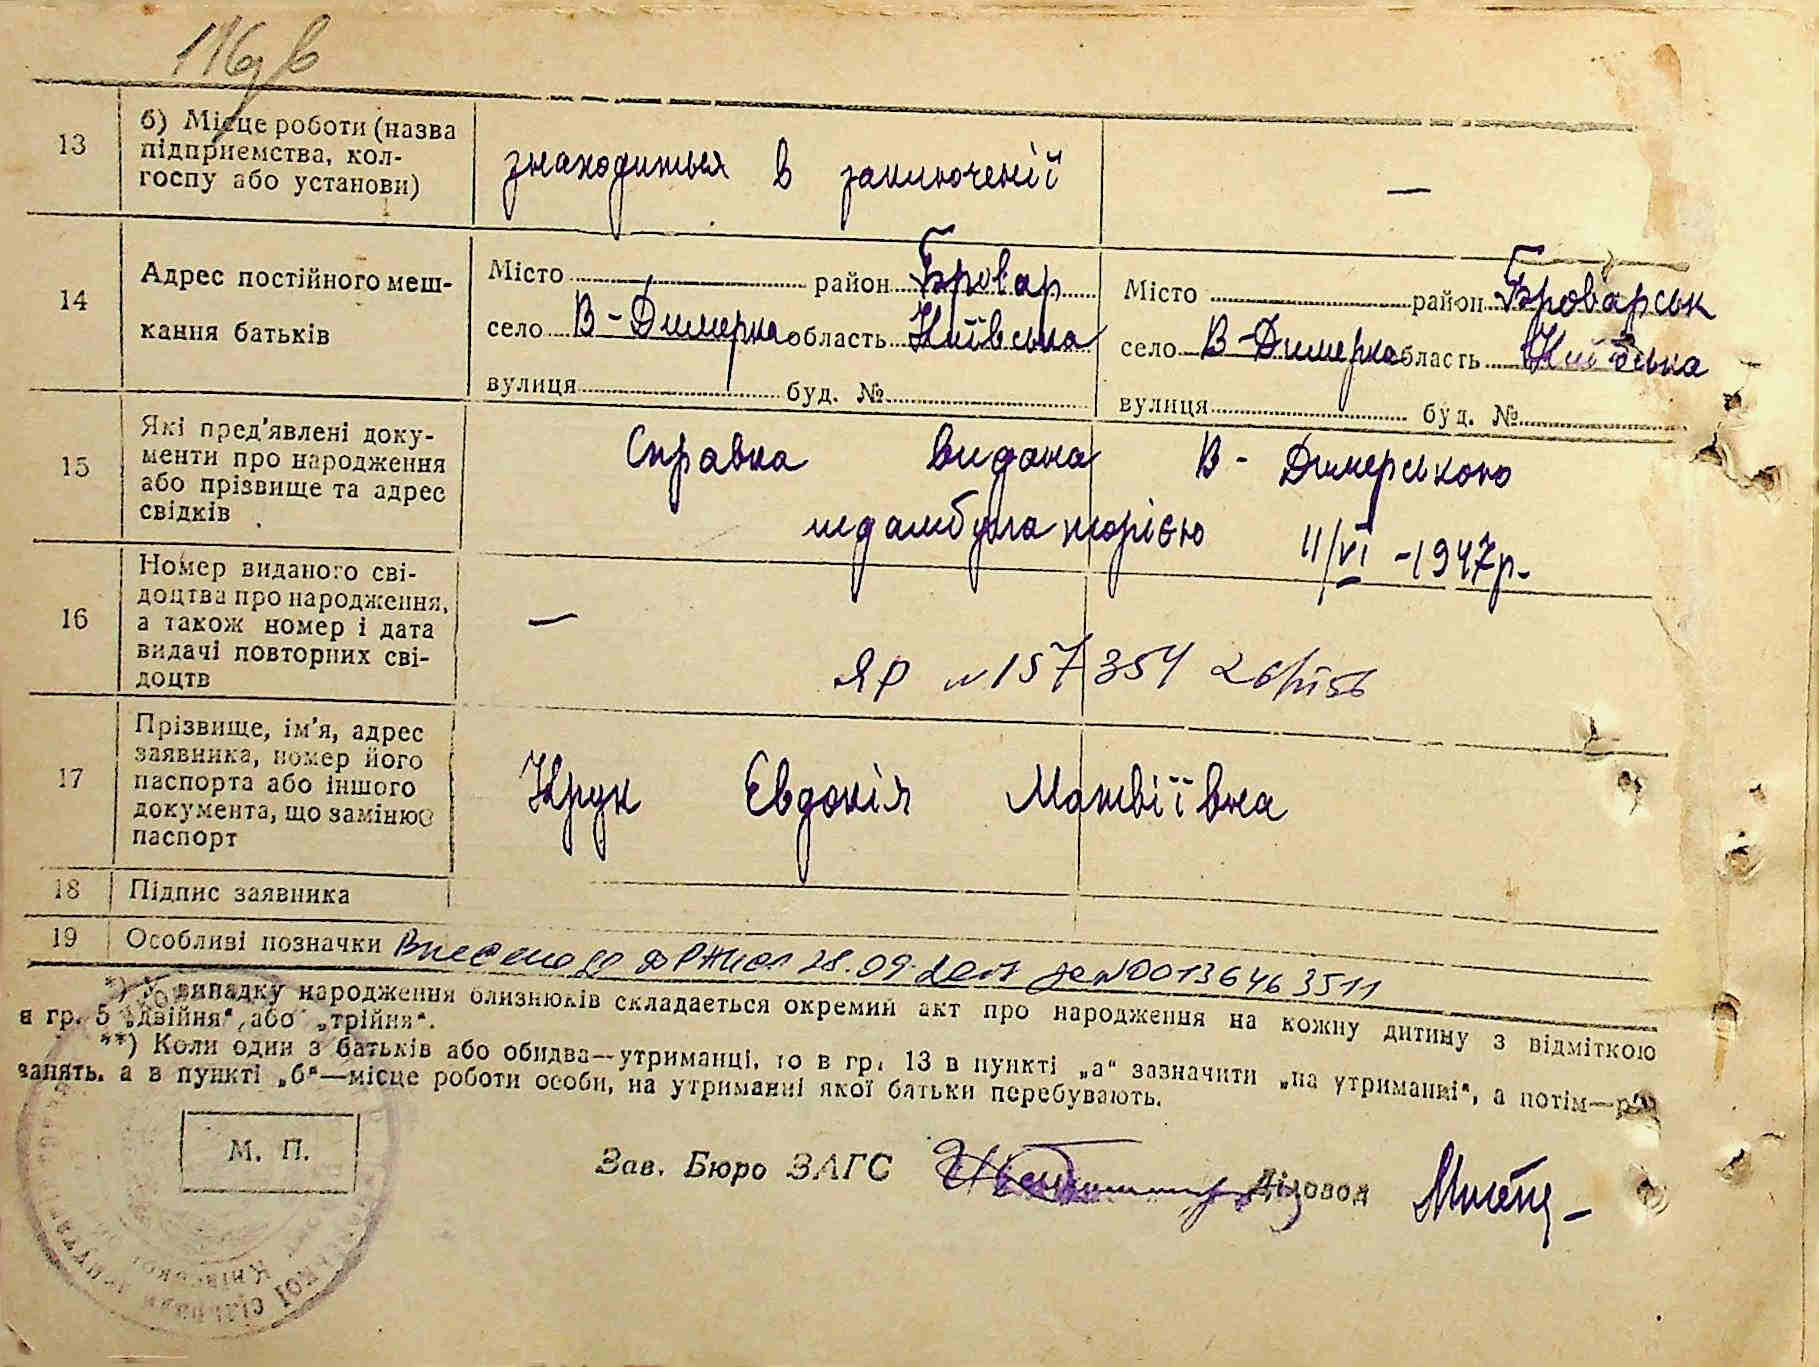 116 зв
13 б) Місце роботи (назва підприємства, колгоспу або установи) знаходиться в заключенії —
14 Адрес постійного мешкання батьків
Місто район Бровар Місто район Броварськ
село В-Димерка область Київська село В-Димерка область Київська
вулиця буд. № вулиця буд. №
15 Які пред'явлені документи про народження або прізвище та адрес свідків Справка видана В-Димерською
медамбулаторією 11/VI -1947р-
16 Номер виданого свідоцтва про народження, а також номер і дата видачі повторних свідоцтв —
ЯР № 157354
17 Прізвище, ім'я, адрес заявника, номер його паспорта або іншого документа, що замінює паспорт Крук Євдокія Матвіївна
18 Підпис заявника
19 Особливі позначки Внесено до 28.09. № 00136463511
*) У випадку народження близнюків складається окремий акт про народження на кожну дитину з відміткою
в гр. 5 „двійня“, або „трійня“.
**) Коли один з батьків або обидва—утриманці, то в гр. 13 в пункті „а“ зазначити „на утриманні“, а потім—рід
занять, а в пункті „б“—місце роботи особи, на утриманні якої батьки перебувають.
М. П.
Зав. Бюро ЗАГС Діловод